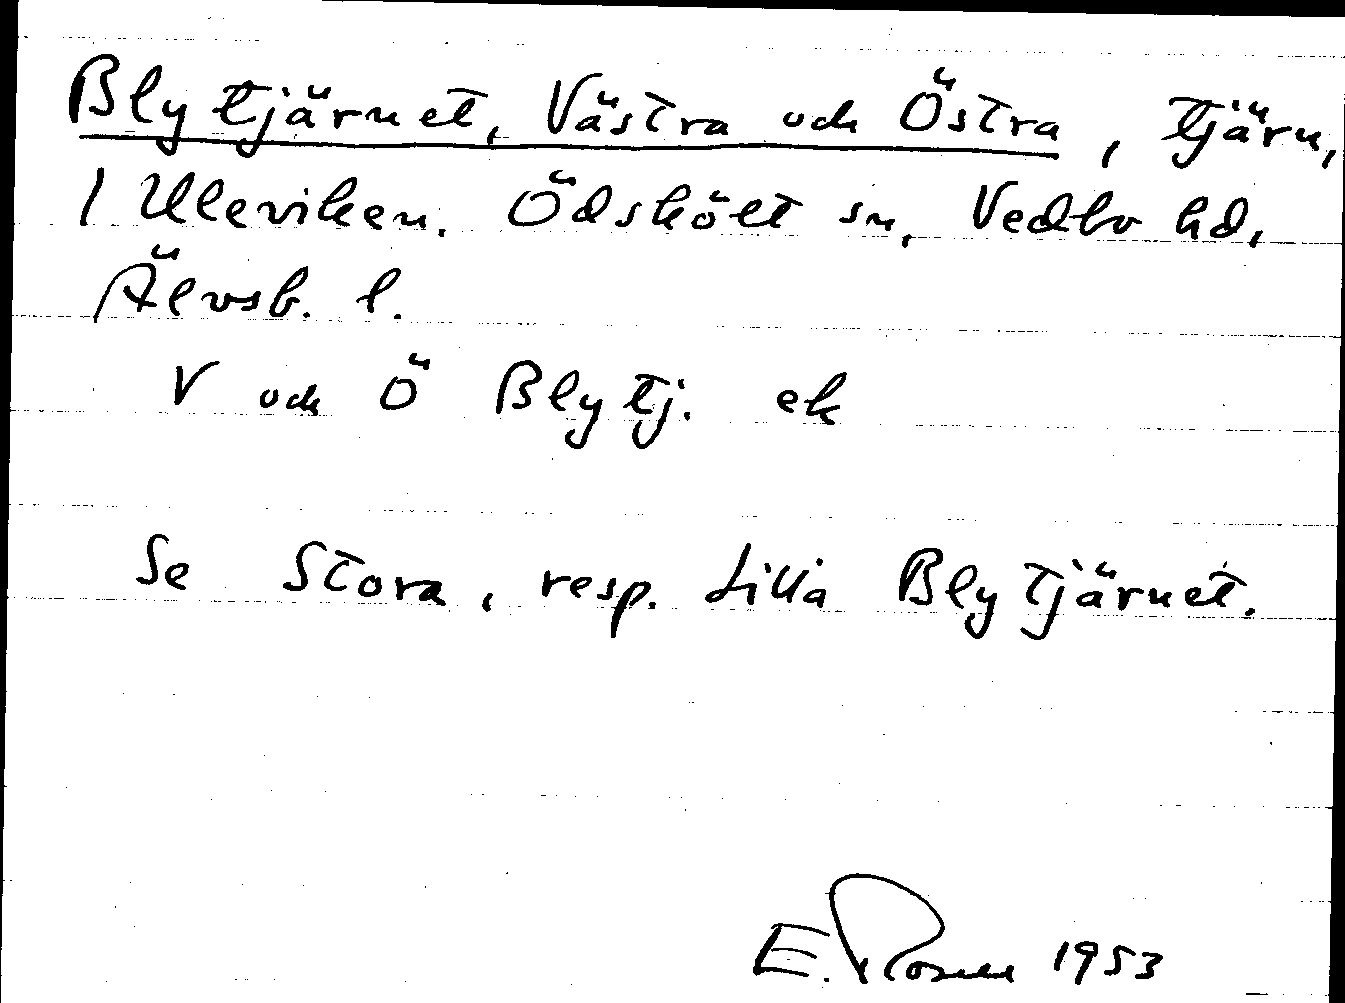 Blytjärnet, Västra och Östra, tjärn,
1 Uleviken. Ödskölt sn, Vedbo hd,
Älvsb. l.
V och Ö Blytj. ek
Se Stora, resp. Lilla Blytjärnet.
E. Rosen 1953